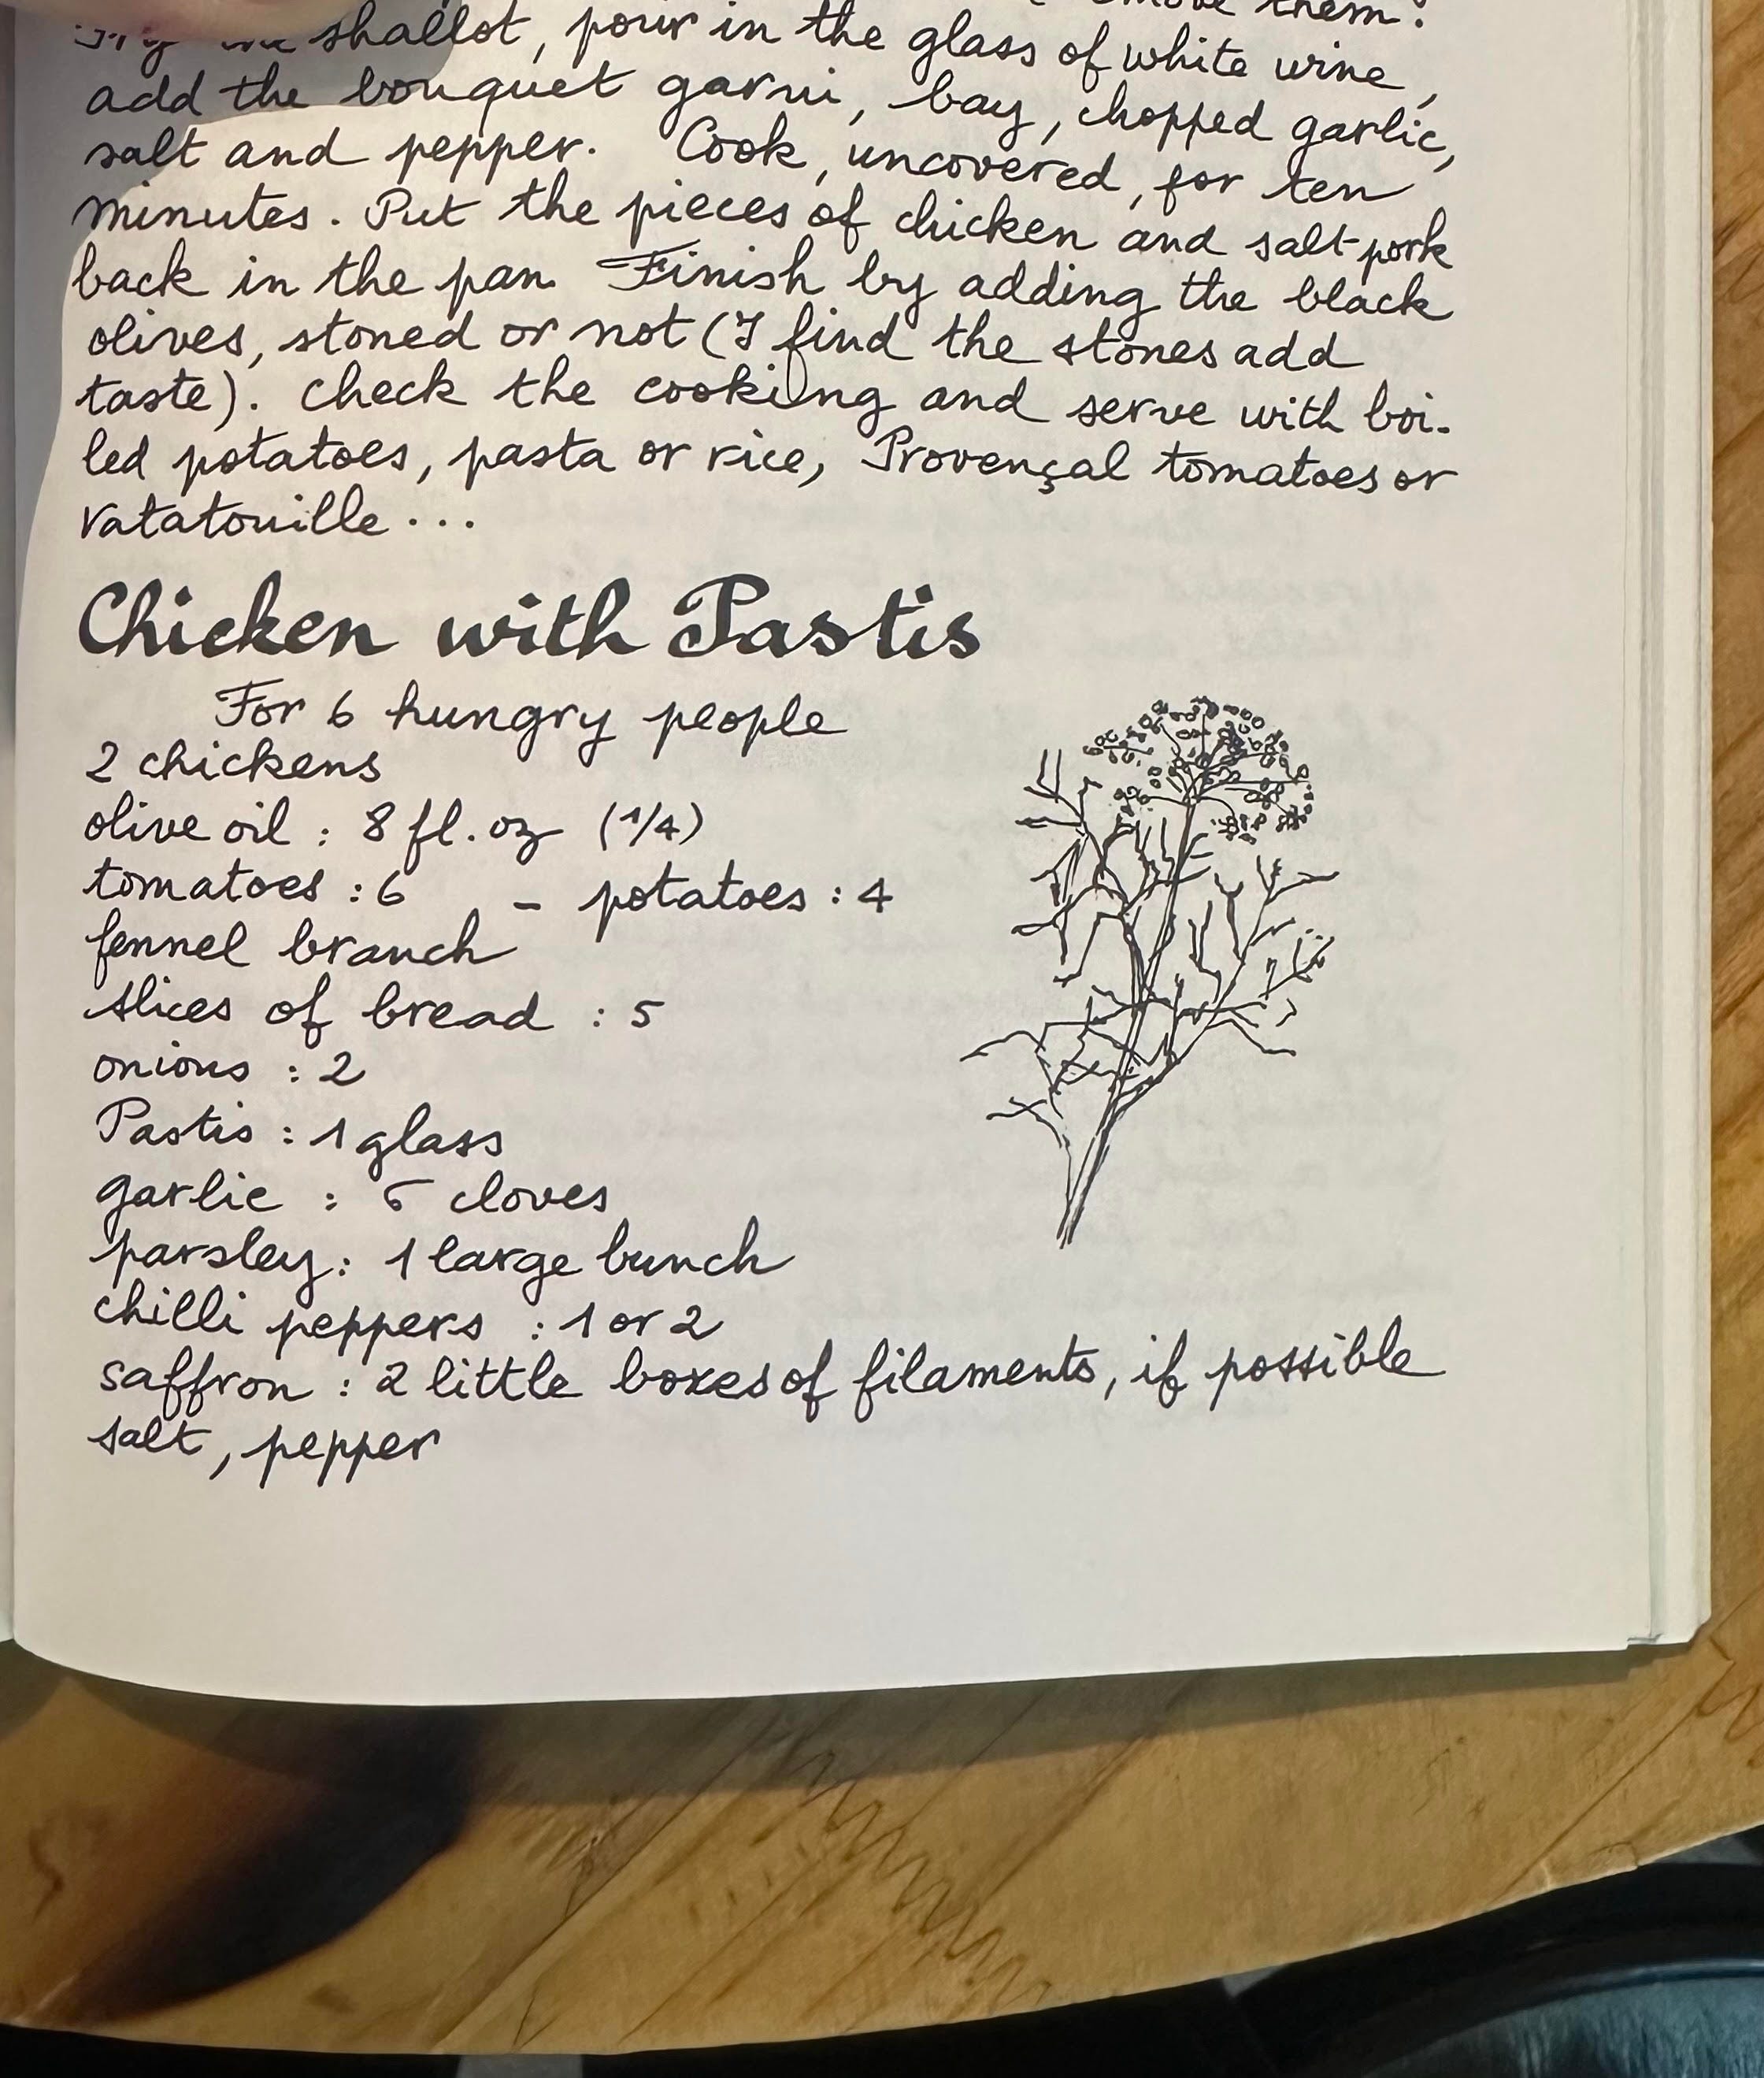 them.
shallot, pour in the glass of white wine,
add the bouquet garni, bay, chopped garlic,
salt and pepper. Cook, uncovered, for ten
minutes. Put the pieces of chicken and salt-pork
back in the pan. Finish by adding the black
olives, stoned or not (I find the stones add
taste). Check the cooking and serve with boi-
led potatoes, pasta or rice, Provençal tomatoes or
ratatouille...
Chicken with Pastis
For 6 hungry people
2 chickens
olive oil : 8 fl.oz (1/4)
tomatoes : 6 - potatoes : 4
fennel branch
slices of bread : 5
onions : 2
Pastis : 1 glass
garlic : cloves
parsley : 1 large bunch
chilli peppers : 1 or 2
saffron : 2 little boxes of filaments, if possible
salt, pepper